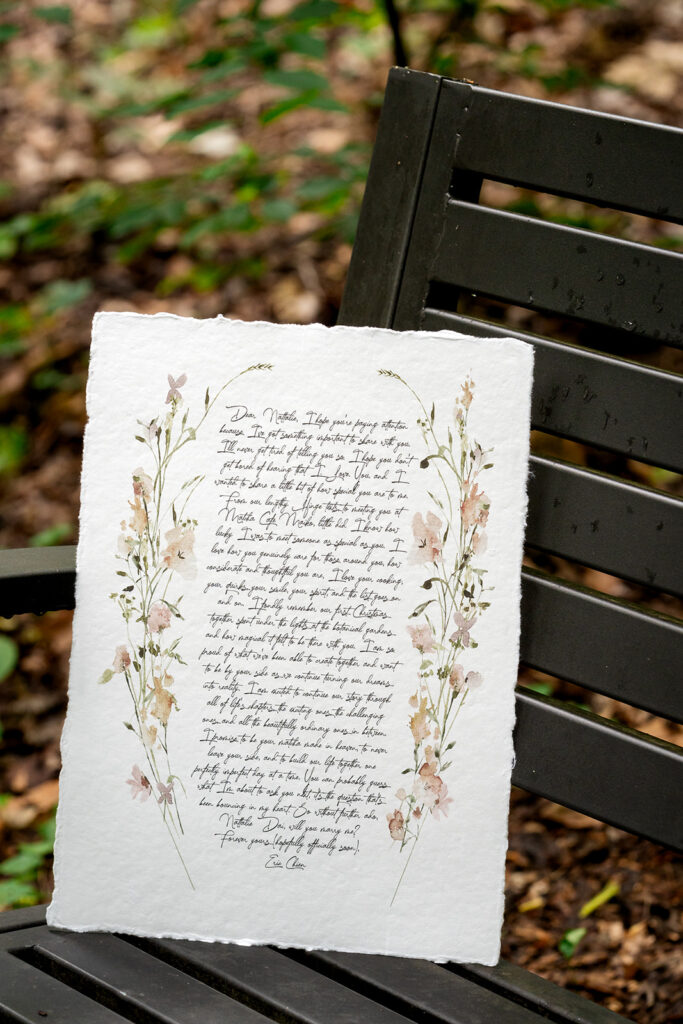 Dear Natalie, I hope you're paying attention
because I've got something important to share with you.
I'll never get tired of telling you so I hope you don't
get bored of hearing that I Love You and I
wanted to share a little bit of how special you are to me.
From our lengthy Hinge texts to meeting you at
Matcha Cafe Maiko, little did I know how
lucky I was to meet someone as special as you. I
love how you genuinely care for those around you, how
considerate and thoughtful you are, I love your cooking,
your quirks, your smile, your spirit and the list goes on
and on. I fondly remember our first Christmas
together spent under the lights at the botanical gardens
and how magical it felt to be there with you. I am so
proud of what we've been able to create together and want
to be by your side as we continue turning our dreams
into reality. I am excited to continue our story through
all of life's chapters, the exciting ones, the challenging
ones, and all the beautifully ordinary ones in between.
I promise to be your matcha made in heaven, to never
leave your side, and to build our life together, one
perfectly imperfect day at a time. You can probably guess
what I'm about to ask you next, it's the question that's
been bouncing in my heart. So without further ado,
Natalie Dai, will you marry me?
Forever yours (hopefully officially soon),
Eric Chen